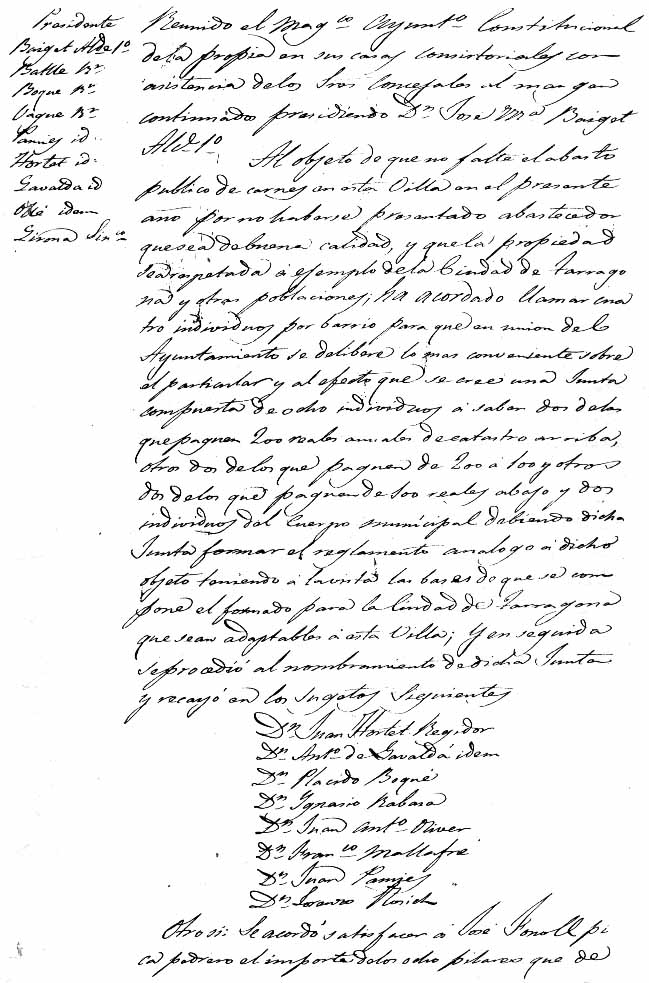 Presidente
Baiget Alde 1º
Batlle Rr
Boque Rr
Vaque Rr
Pamies id.
Hortet id.
Gavalda id
idem
Girona Sinco
Reunido el Magco Ayunto Constitucional
dela propia en sus casas consistoriales con
asistencia delos Sres Concejales al margen
continuados presidiendo Dn José Ma Baiget
Alde 1º
Al objeto de que no falte el abasto
publico de carnes en esta Villa en el presente
año por no haberse presentado abastecedor
que sea debuena calidad, y que la propiedad
sea respetada á ejemplo dela Ciudad de Tarrago
na y otras poblaciones; ha acordado llamar cua
tro individuos por barrio para que en union del
Ayuntamiento se delibere lo mas conveniente sobre
el particular y al efecto que se cree una Junta
compuesta de ocho individuos á saber dos delos
que paguen 200 reales anuales de catastro arriba,
otros dos delos que paguen de 200 á 100 y otros
dos delos que paguen de 100 reales abajo y dos
individuos del Cuerpo municipal debiendo dicha
Junta formar el reglamento analogo á dicho
objeto teniendo á la vista las bases de que se com
pone el formado para la Ciudad de Tarragona
que sean adaptables á esta Villa; Y en seguida
se procedió al nombramiento de dicha Junta
y recayó en los sugetos siguientes
Dn Juan Hortet Regidor
Dn Anto de Gavaldá idem
Dn Placido Boqué
Dn Ygnasio Rabasa
Dn Juan Anto Oliver
Dn Franco Mallafré
Dn Juan Pamies
Dn Florich
Otro si: Se acordó satisfacer á José Fonoll pi
ca pedrero el importe delos ocho pilares que de